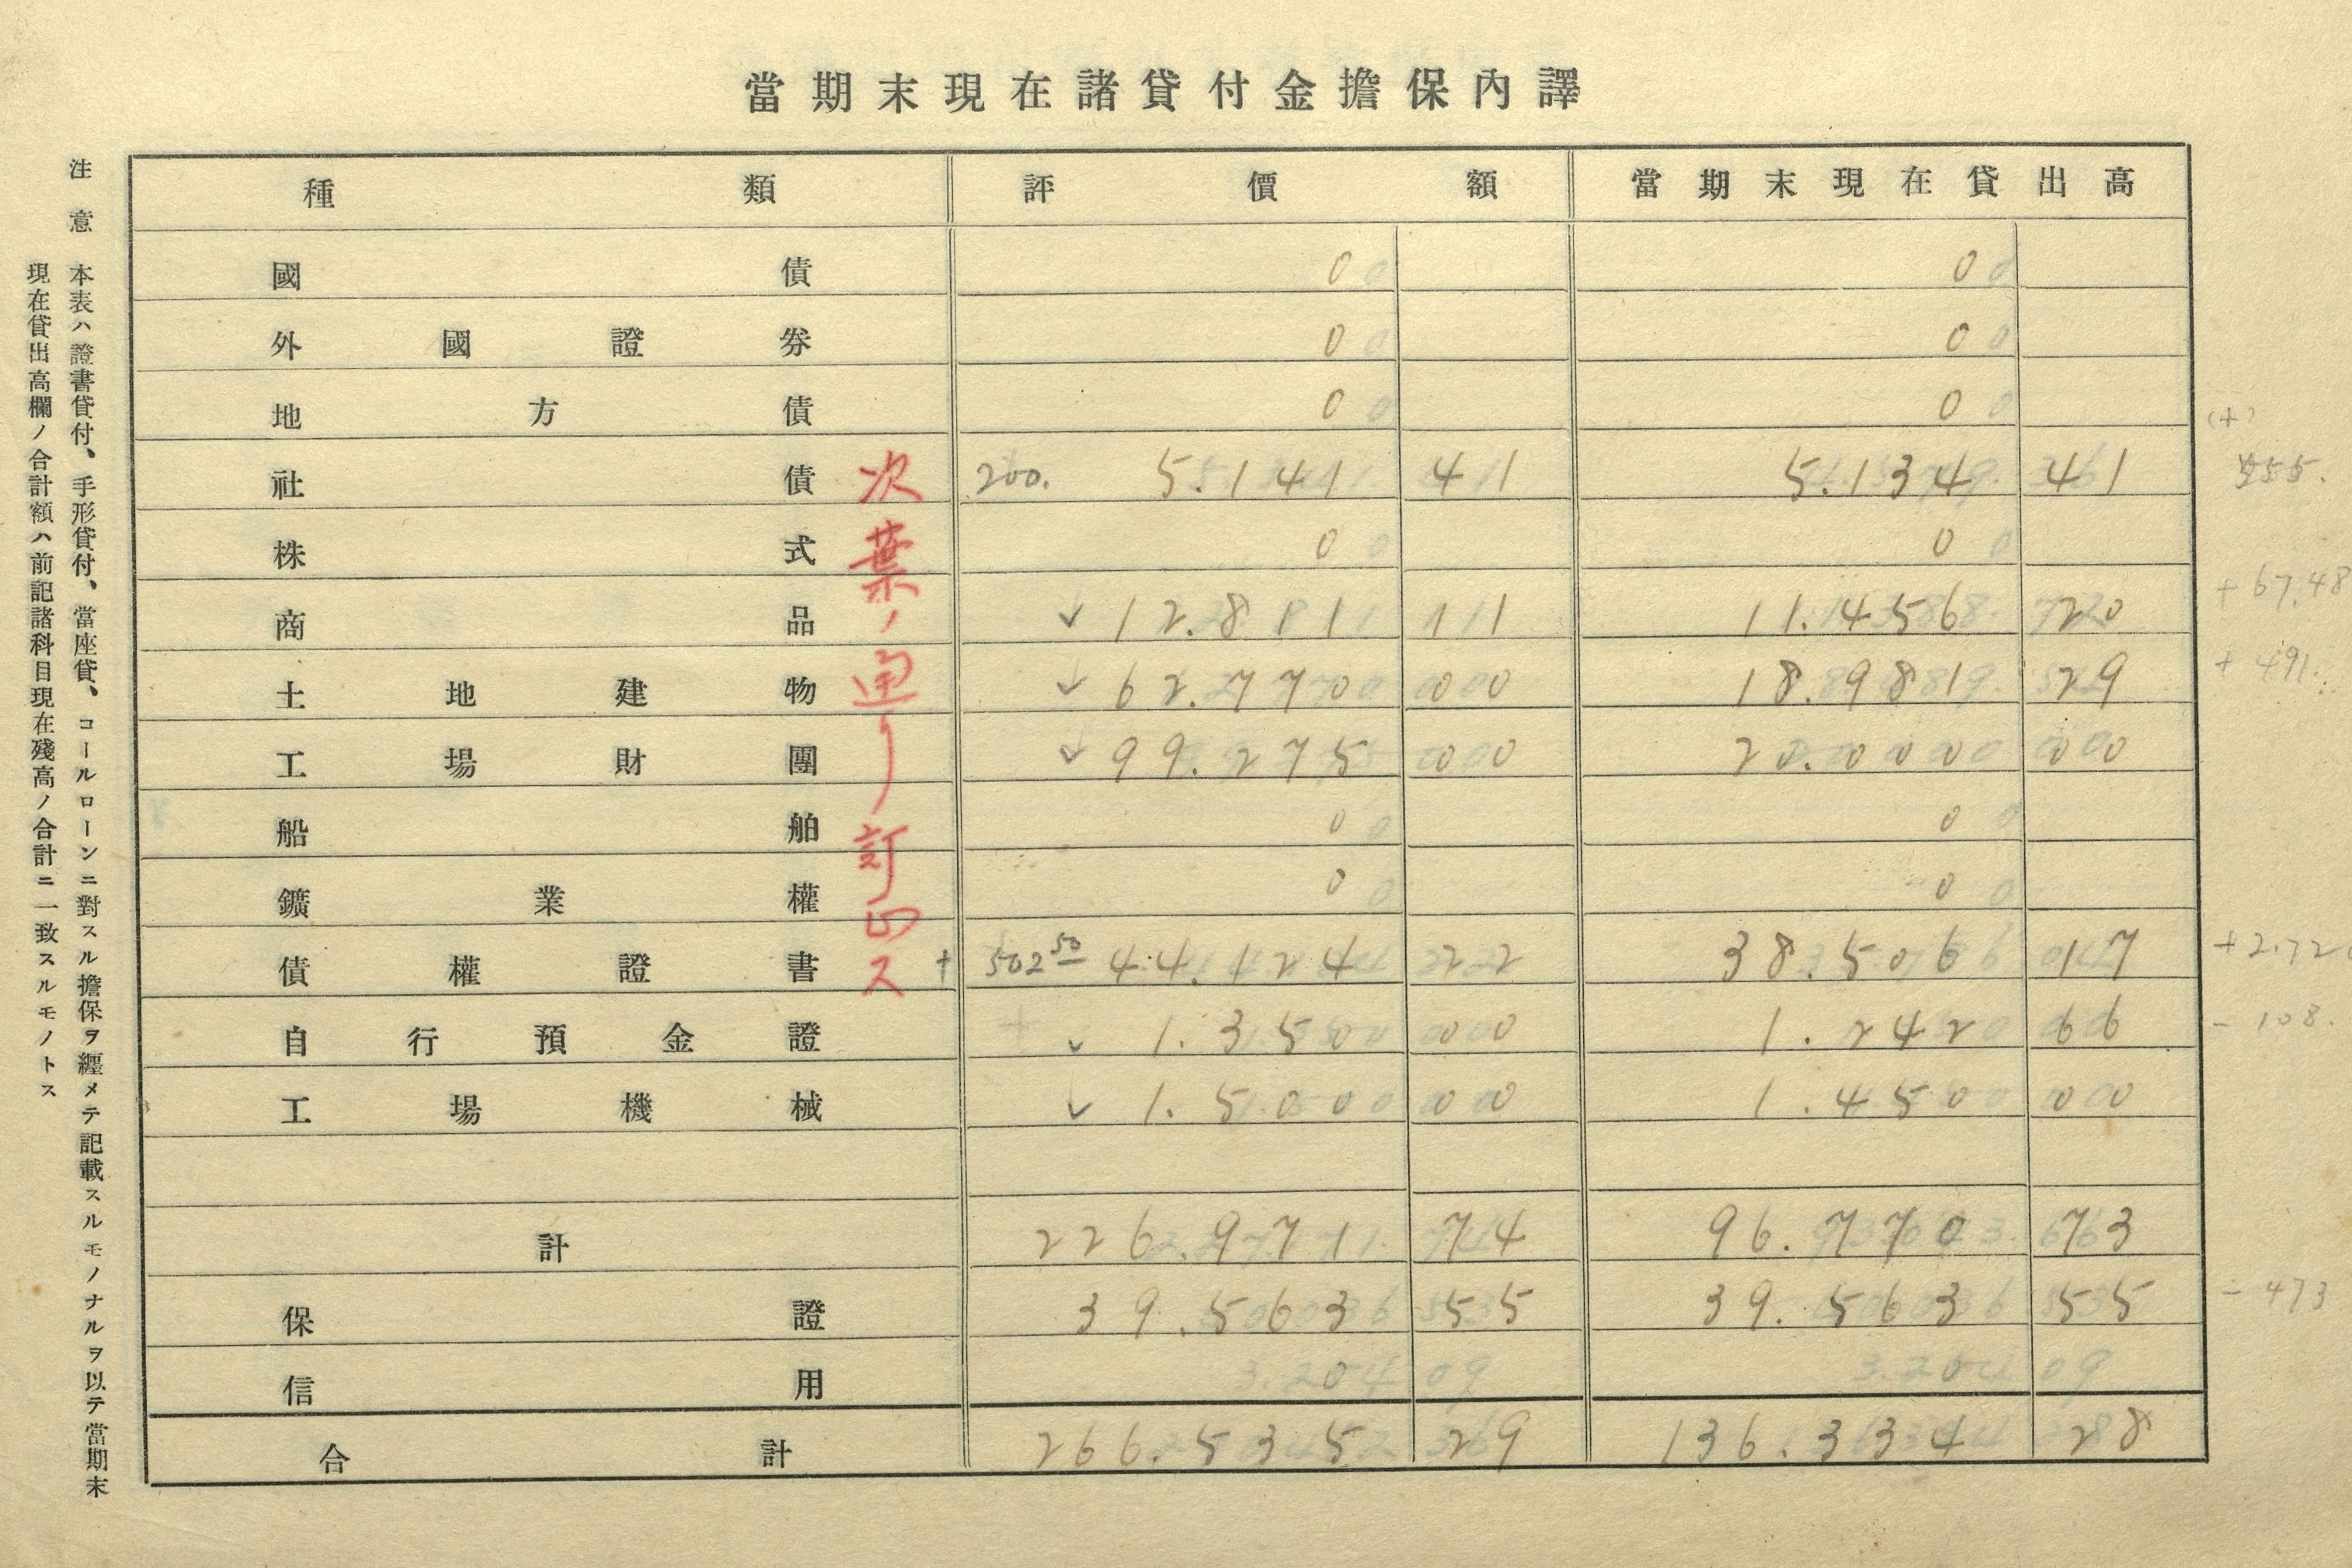 當期末現在諸貸付金擔保內譯
種類 評價額 當期末現在貸出高
國債 0 0
外國證券 0 0
地方債 0 0
社債 200. 5.141 41 5.134 41
株式 0 0
商品 ✓ 12.811 11 11.456 20 +67.48
土地建物 ✓ 62.770 00 18.981 29 +491.
工場財團 ✓ 99.275 00 20.000 00
船舶 0 0
鑛業權 0 0
債權證書 + 502 50 44.124 22 38.506 17
自行預金證 ✓ 1.350 00 1.242 66 - 108.
工場機械 ✓ 1.500 00 1.450 00
計 226.971 74 96.770 73
保證 39.563 55 39.563 55 - 473
信用
合計 266.535 29 136.334 28
次葉ノ通リ訂正ス
注意 本表ハ證書貸付、手形貸付、當座貸、コールローンニ對スル擔保ヲ纒メテ記載スルモノナルヲ以テ當期末
現在貸出高欄ノ合計額ハ前記諸科目現在殘高ノ合計ニ一致スルモノトス